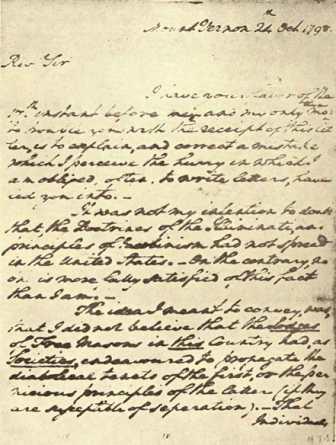 Mount Vernon 24th Oct. 1798.
Revd Sir
I have your favor of the
17th instant before me; and my only
to trouble you with the receipt of this let
ter, is to explain, and correct a mistake
which I perceive the hurry in which I
am obliged, often, to write letters, have
led you into.—
It was not my intention to doubt
that, the Doctrines of the Iluminati, and
principles of Jacobinism had not spread
in the United States.— On the contrary, no
one is more fully satisfied of this fact
than I am.—
The idea I meant to convey, was,
that I did not believe that the Lodges
of Free Masons in this Country had, as
Societies, endeavoured to propagate the
diabolical tenets of the first, or the per
nicious principles of the latter (if they
are susceptible of seperation).— That
Individuals